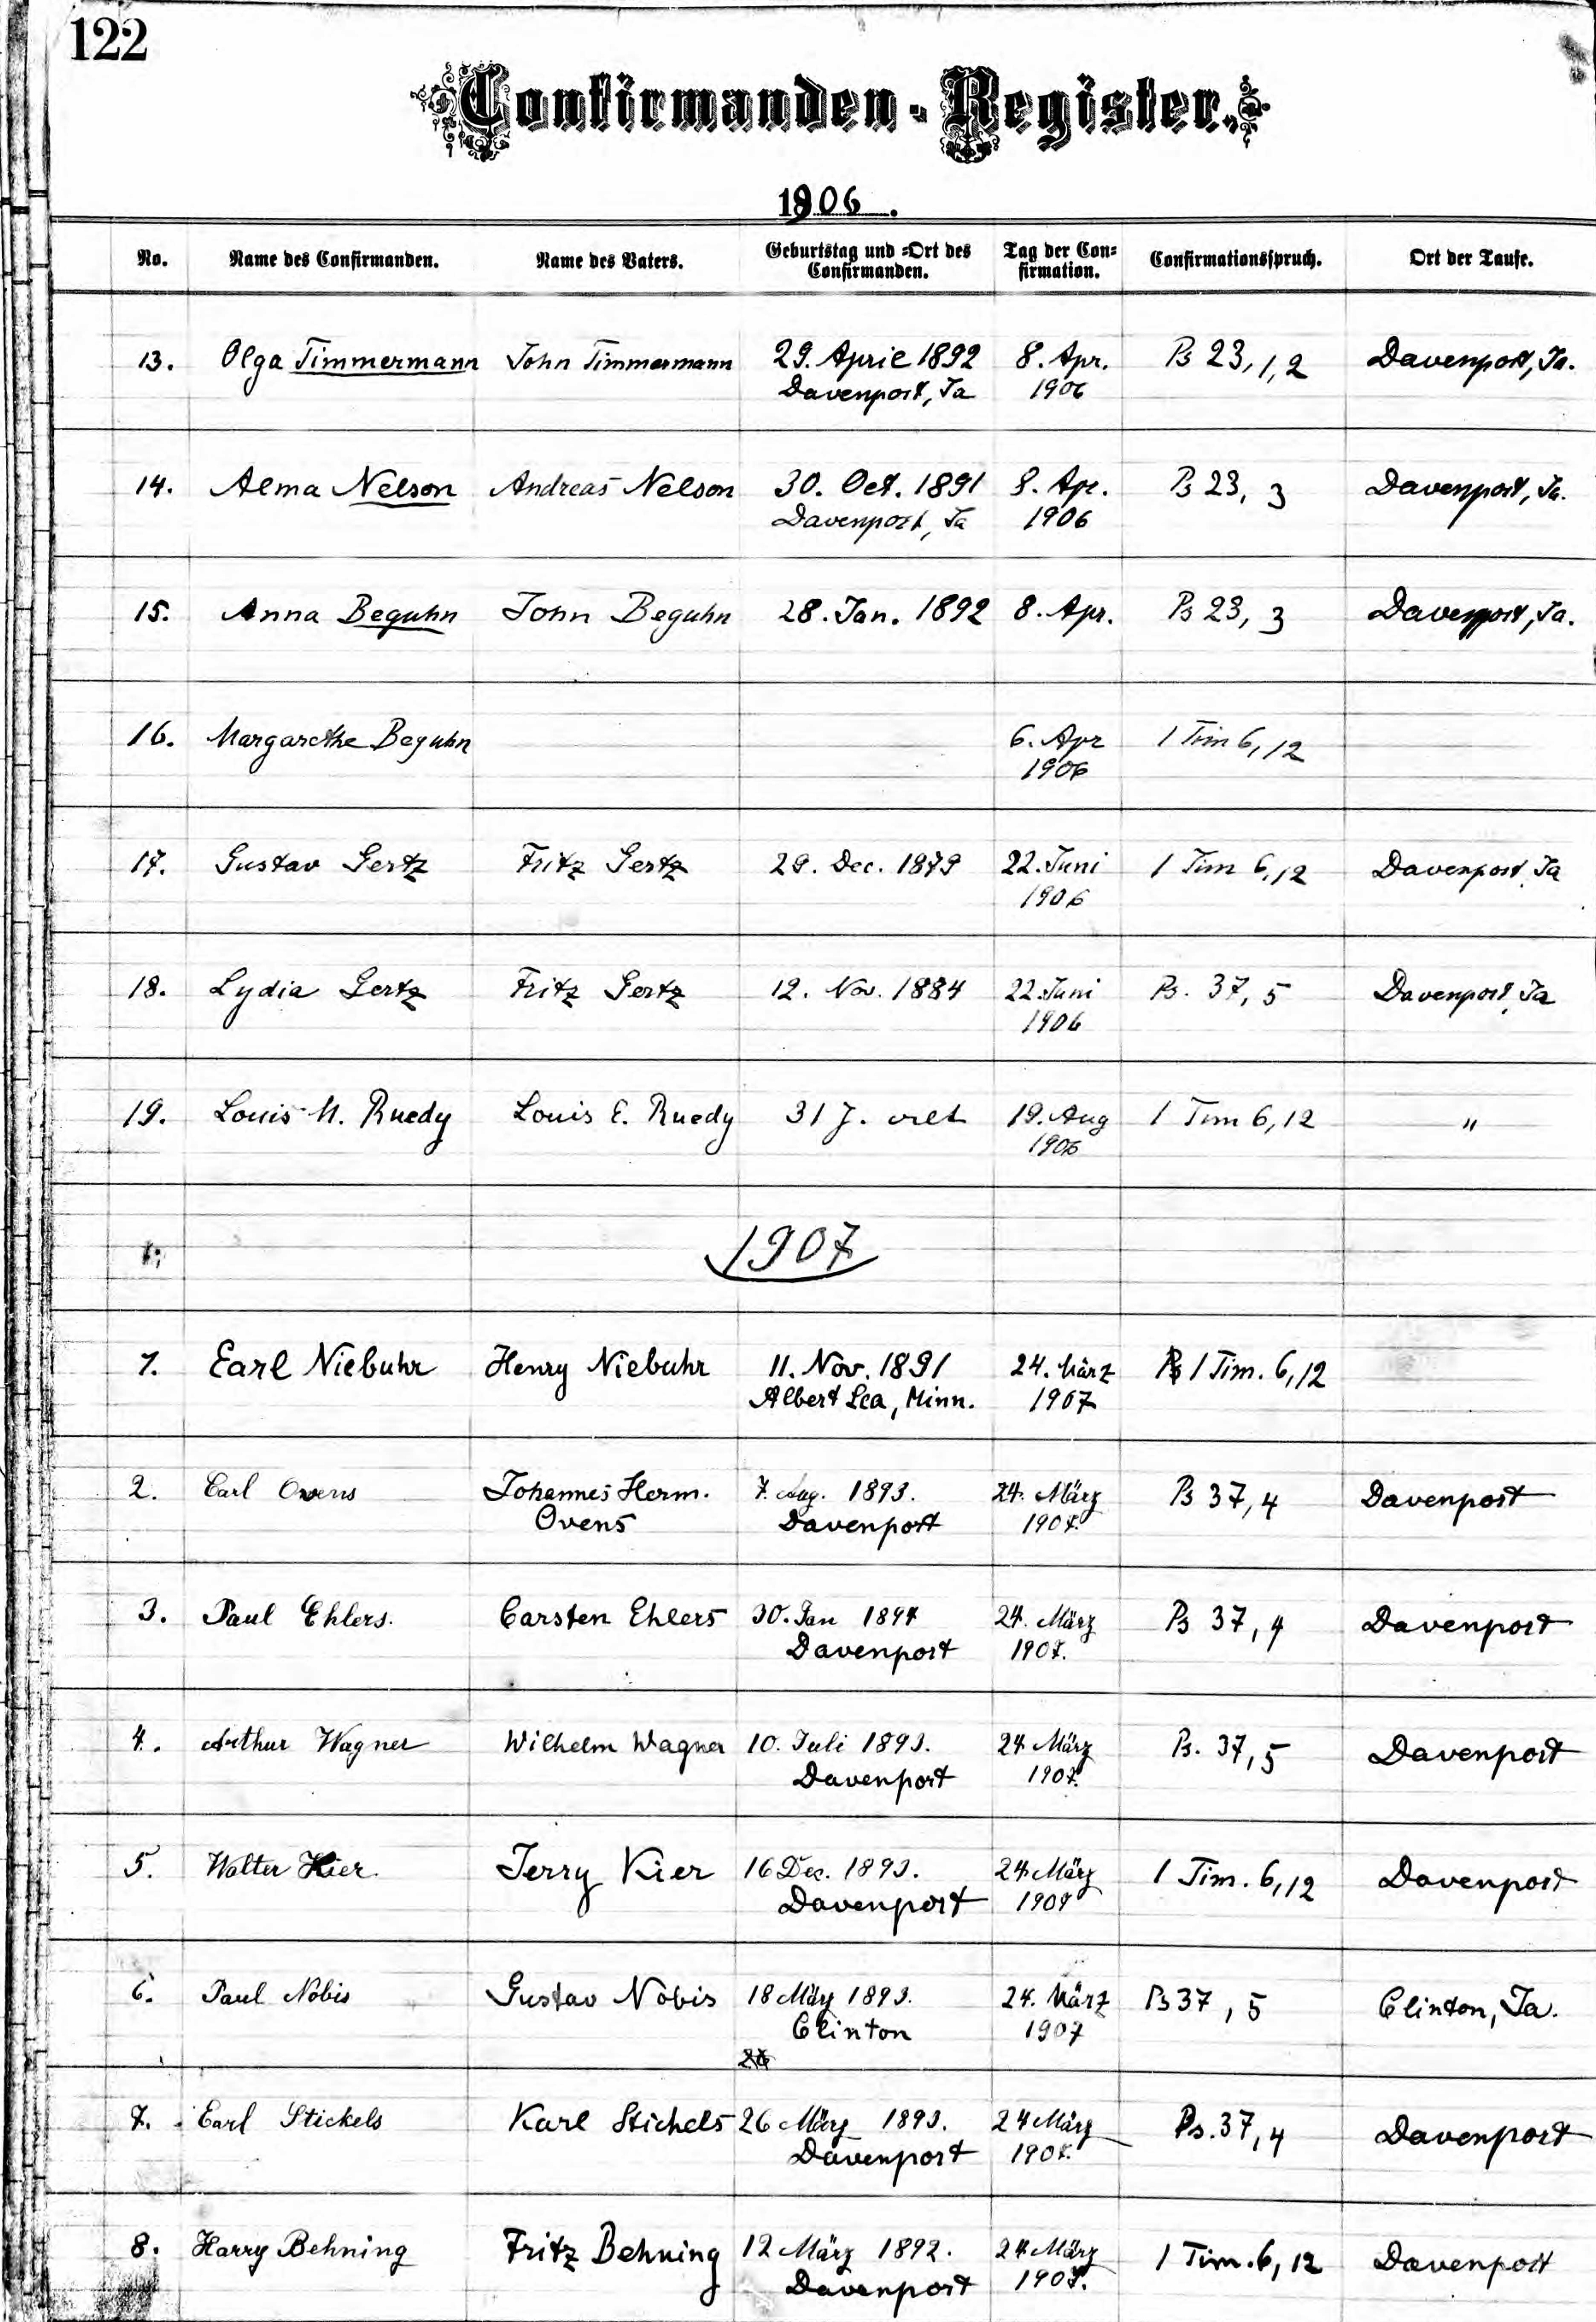 122
Confirmanden-Register.
1906.
No. Name des Confirmanden. Name des Vaters. Geburtstag und =Ort des Confirmanden. Tag der Con= firmation. Confirmationsspruch. Ort der Taufe.
13. Olga Timmermann John Timmermann 29. April 1892 8. Apr. Ps 23, 1, 2 Davenport, Ia.
Davenport, Ia 1906
14. Alma Nelson Andreas Nelson 30. Oct. 1891 8. Apr. Ps 23, 3 Davenport, Ia.
Davenport, Ia 1906
15. Anna Beguhn John Beguhn 28. Jan. 1892 8. Apr. Ps 23, 3 Davenport, Ia.
16. Margarethe Beguhn 6. Apr 1 Tim 6, 12
1906
17. Gustav Gertz Fritz Gertz 29. Dec. 1879 22. Juni 1 Tim 6, 12 Davenport, Ia
1906
18. Lydia Gertz Fritz Gertz 12. Nov. 1884 22. Juni Ps. 37, 5 Davenport, Ia
1906
19. Louis M. Ruedy Louis E. Ruedy 31 J. alt 19. Aug 1 Tim 6, 12 "
1906
1907
1. Earl Niebuhr Henry Niebuhr 11. Nov. 1891 24. März 1 Tim. 6, 12
Albert Lea, Minn. 1907
2. Carl Ovens Johannes Herm. 7. Aug. 1893. 24. März Ps 37, 4 Davenport
Ovens Davenport 1907.
3. Paul Ehlers. Carsten Ehlers 30. Jan 1894 24. März Ps 37, 4 Davenport
Davenport 1907.
4. Arthur Wagner Wilhelm Wagner 10. Juli 1893. 24 März Ps. 37, 5 Davenport
Davenport 1907.
5. Walter Kier Jerry Kier 16 Dec. 1893. 24 März 1 Tim. 6, 12 Davenport
Davenport 1907
6. Paul Nobis Gustav Nobis 18 März 1893. 24. März Ps 37, 5 Clinton, Ia.
Clinton 1907
7. Earl Stickels Karl Stickels 26 März 1893. 24 März Ps. 37, 4 Davenport
Davenport 1907.
8. Harry Behning Fritz Behning 12 März 1892. 24 März 1 Tim. 6, 12 Davenport
Davenport 1907.